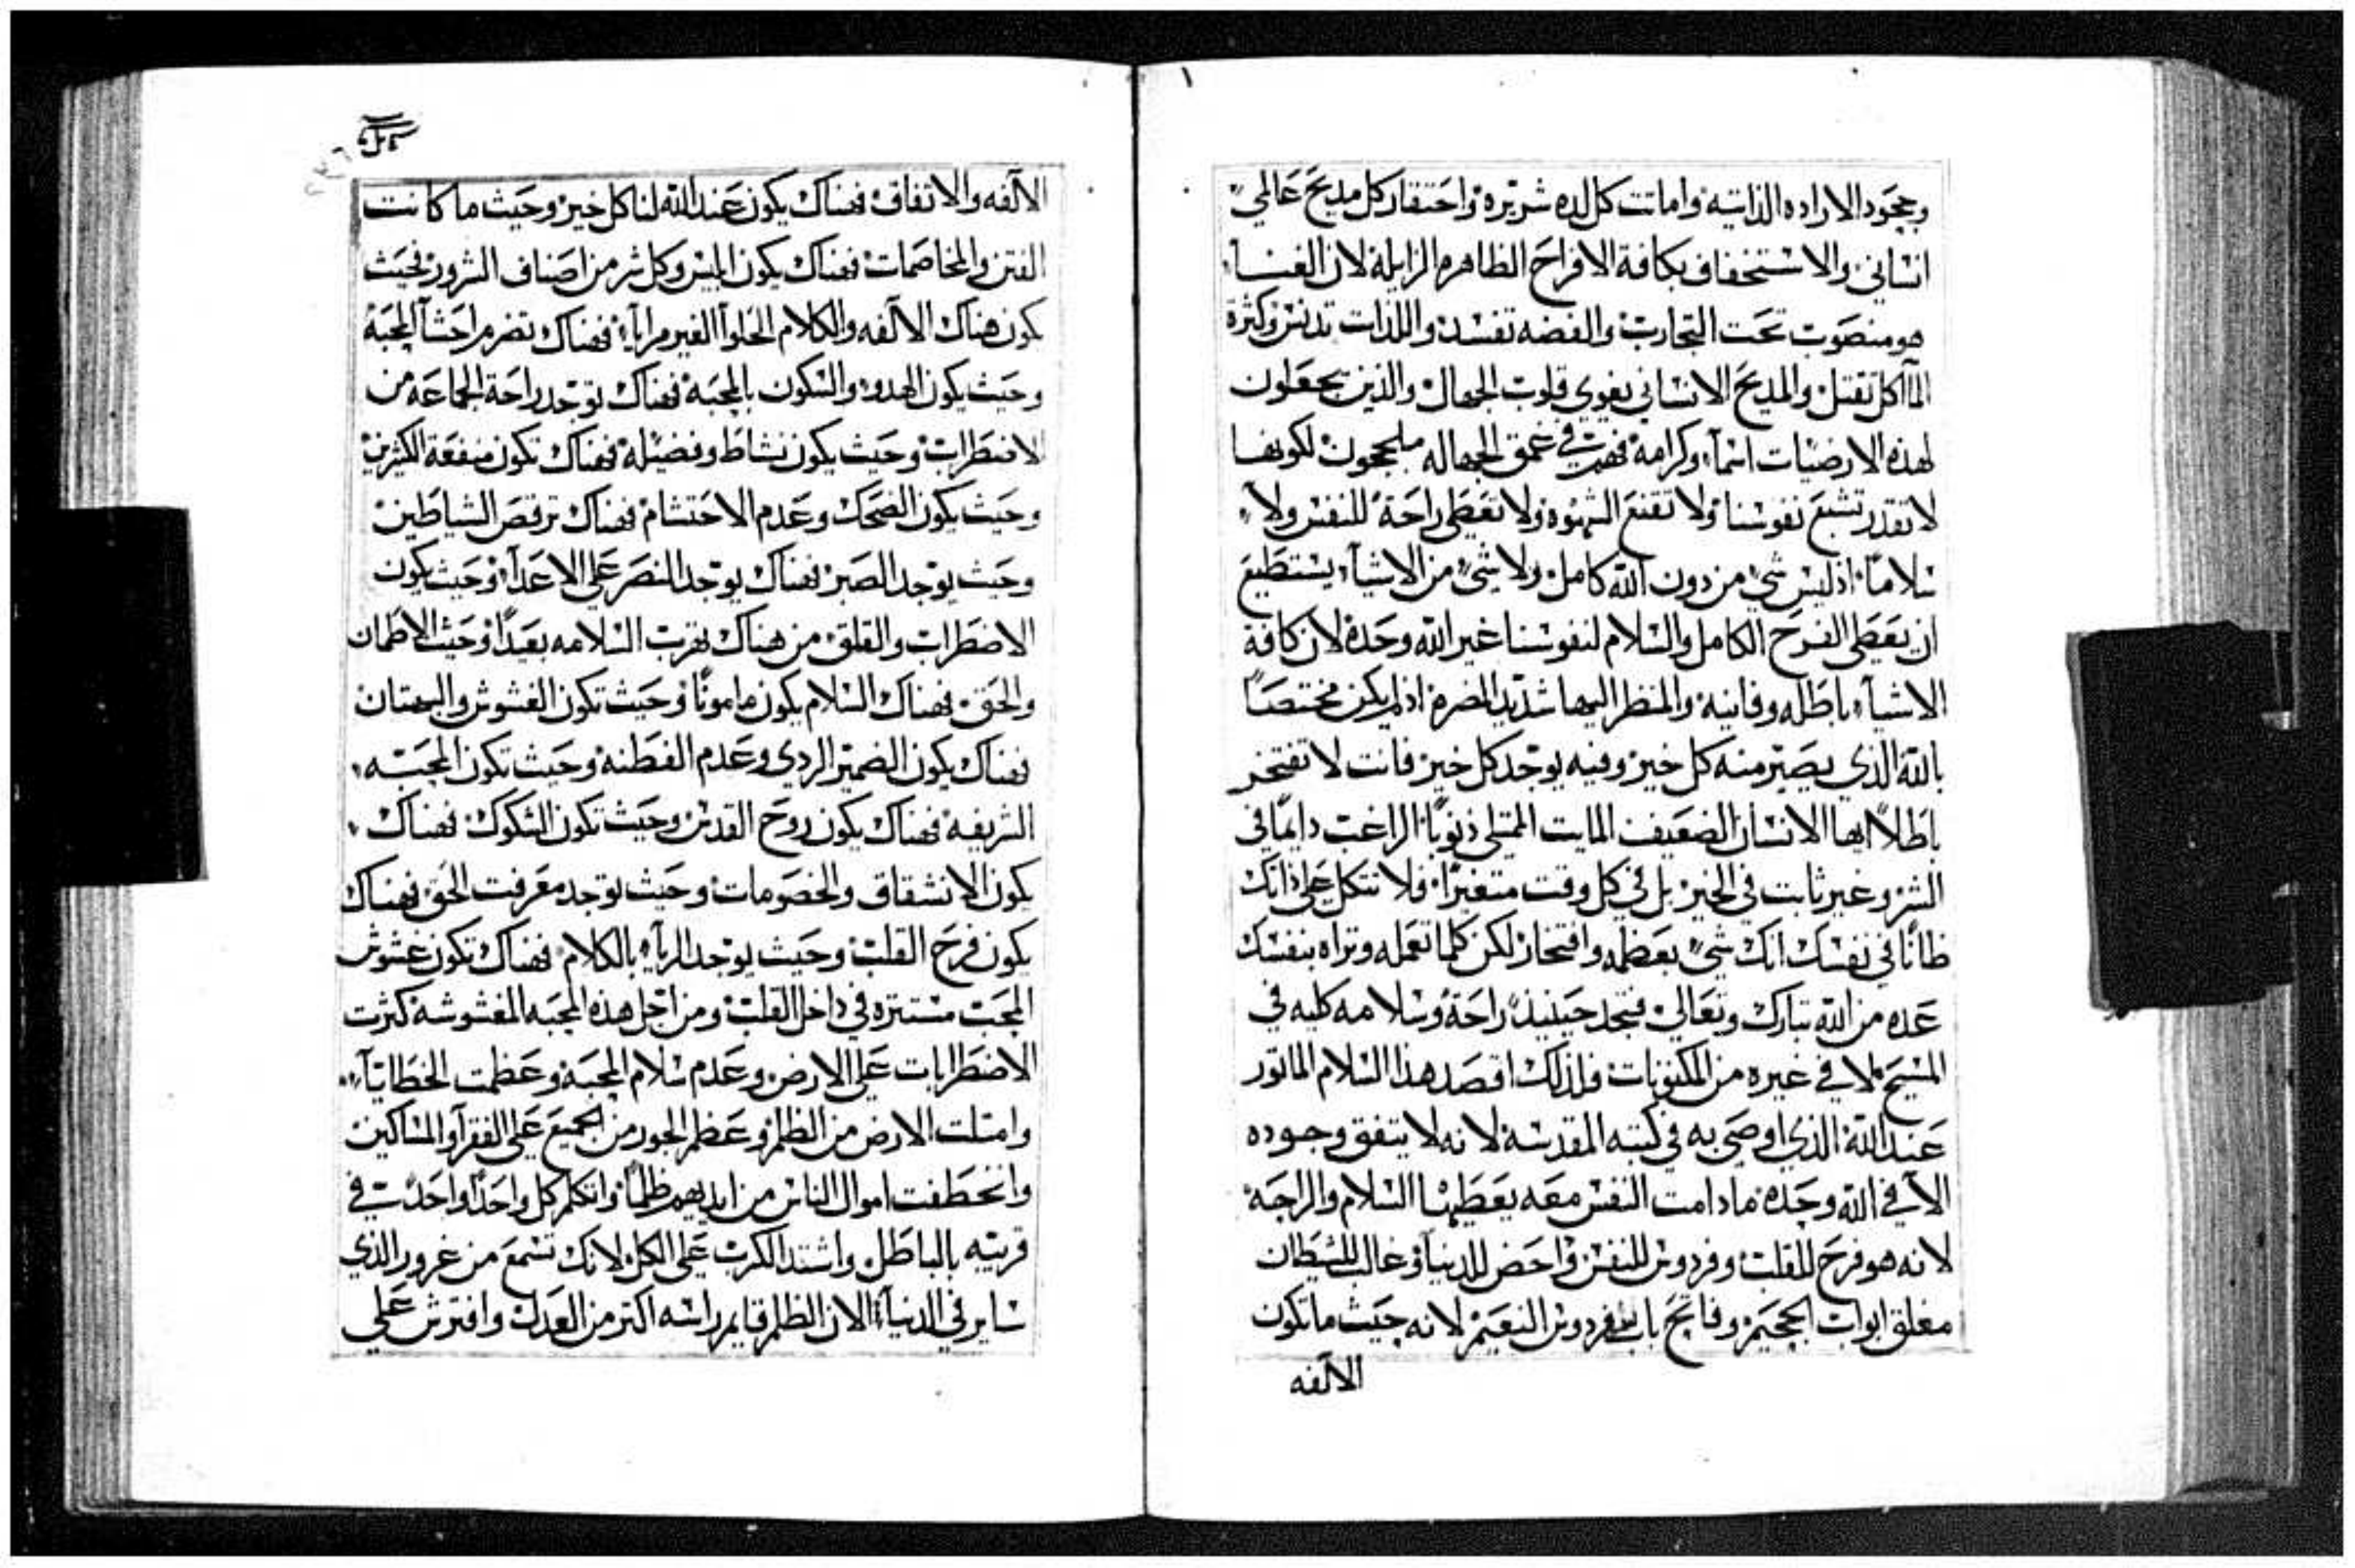 وجحود الاراده الذاتيه واماتت كل لده شريره واحتقار كل مديح عالمي
انساني والاستخفاف بكافة الافراح الظاهره الزايلة لان الغنا
هو منصوب تحت التجارب والفضه تفسد واللذات تدنس وكثرة
المآكل تقتل والمديح الانساني يغوي قلوب الجهال والذين يجعلون
لهذه الارضيات اسماً وكرامة فهم في عمق الجهاله ملججون لكونها
لا تقدر تشبع نفوسنا ولا تقنع الشهوه ولا تعطي راحة للنفس ولا
سلاماً اذ ليس شي من دون الله كامل ولا شي من الاشيآء يستطيع
ان يعطي الفرح الكامل والسلام لنفوسنا غير الله وحده لان كافة
الاشيآء باطله وفانيه والمنظر اليها شديد المضره اذ لم يكن مختصاً
بالله الذي يصير منه كل خير وفيه يوجد كل خير فانت لا تفتخر
باطلاً ايها الانسان الضعيف المايت الممتلي ذنوباً الراغب دايماً في
الشر وغير ثابت في الخير بل في كل وقت متغيراً فلا تتكل علي ذاتك
ظاناً في نفسك انك شي بعظمه وافتخار لكن كلما تعمله وتراه بنفسك
عده من الله تبارك وتعالي فتجد حينيذ راحة وسلامه كليه في
المسيح لا في غيره من المكنونات فلذلك اقصد هذا السلام الماتور
عند الله الذي اوصي به في كتبه المقدسة لانه لا يتفق وجوده
الآ في الله وحده ما دامت النفس معه يعطيها السلام والراحة
لانه هو فرح للقلب وفردوس للنفس واحض للدنيا وغالب للشيطان
مغلق ابواب الجحيم وفاتح باب فردوس النعيم لانه حيث ما تكون
الآلفه
الآلفه والاتفاق فهناك يكون عند الله لنا كل خير وحيث ما كانت
الفتن والمخاصمات فهناك يكون ابليس وكل شر من اصناف الشرور فحيث
يكون هناك الآلفه والكلام الحلو الغير مرايآء فهناك تضرم احشآ المحبة
وحيث يكون الهدوء والسكون بالمحبة فهناك توجد راحة الجماعة من
الاضطراب وحيث يكون نشاط وفضيله فهناك تكون منفعة الكثيرين
وحيث يكون الضحك وعدم الاحتشام فهناك ترقص الشياطين
وحيث يوجد الصبر فهناك يوجد النصر علي الاعدآء وحيث يكون
الاضطراب والقلق من هناك تهرب السلامه بعيداً وحيث الاطمان
والحق فهناك السلام يكون ماموناً وحيث تكون الغشوش والبهتان
فهناك يكون الضمير الردي وعدم الفطنه وحيث تكون المحبه
الشريفة فهناك يكون روح القدس وحيث تكون الشكوك فهناك
يكون الانشقاق والخصومات وحيث توجد معرفت الحق فهناك
يكون فرح القلب وحيث يوجد الريآء بالكلام فهناك تكون غشوش
المحب مستتره في داخل القلب ومن اجل هذه المحبه المغشوشة كثرت
الاضطرابات علي الارض وعدم سلام المحبة وعظمت الخطايآ
وامتلت الارض من الظلم وعظم الجور من الجميع علي الفقرآ والمساكين
وانخطفت اموال الناس من ايديهم ظلماً واتكلم كل واحداً واحداً في
قريبه بالباطل واشتد الكرب علي الكل لانك تسمع من غرور الذي
ساير في الدنيآ الان الظلم قايم راسه اكتر من العدل وافترش علي